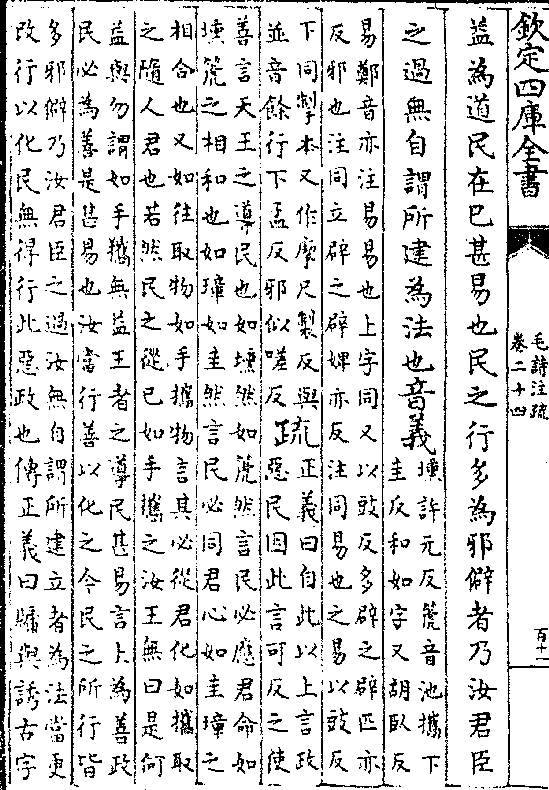 欽定四庫全書
毛詩注疏
卷二十四
百十一
益為道民在已甚易也民之行多為邪僻者乃汝君臣
之過無自謂所建為法也音義
壎許元反箎音池攜下
圭反和如字又胡臥反
易鄭音亦注易易也上字同又以豉反多辟之辟匹亦
反邪也注同立辟之辟婢亦反注同易也之易以豉反
下同掣本又作摩尺製反與
並音餘行下孟反邪似嗟反
疏
正義曰自此以上言政
惡民困此言可反之使
善言天王之導民也如壎然如箎然言民必應君命如
壎箎之相和也如璋如圭然言民必同君心如圭璋之
相合也又如往取物如手攜物言其必從君化如攜取
之隨人君也若然民之從已如手攜之汝王無曰是何
益與勿謂如手攜無益王者之導民甚易言上為善政
民必為善是甚易也汝當行善以化之今民之所行皆
多邪僻乃汝君臣之過汝無自謂所建立者為法當更
改行以化民無得行此惡政也傳正義曰牖與誘古字